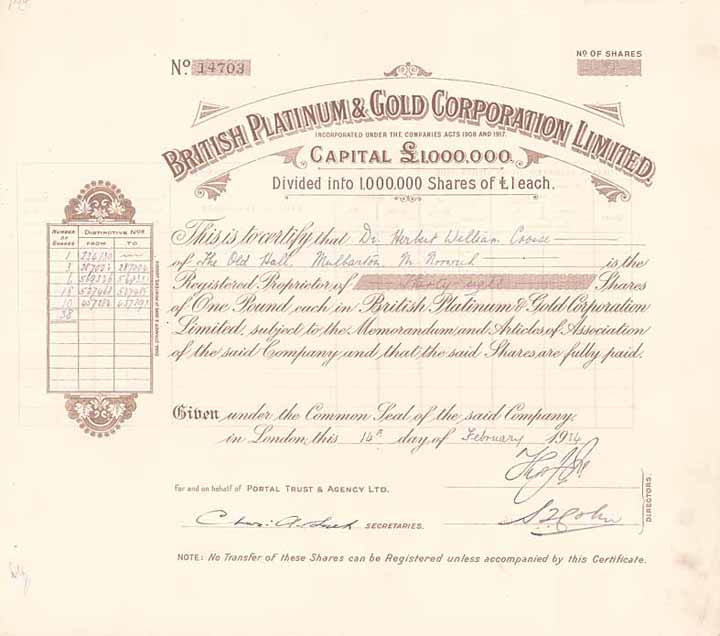 Nº 14703
Nº OF SHARES
BRITISH PLATINUM & GOLD CORPORATION LIMITED.
INCORPORATED UNDER THE COMPANIES ACTS 1908 AND 1917.
CAPITAL £1,000,000.
Divided into 1,000,000 Shares of £1 each.
NUMBER OF SHARES
DISTINCTIVE Nºs
FROM TO
1
38
This is to certify that Dr. Herbert William
of The Old Hall, Mulbarton, Nr Norwich is the
Registered Proprietor of Thirty-eight Shares
of One Pound each in British Platinum & Gold Corporation
Limited, subject to the Memorandum and Articles of Association
of the said Company, and that the said Shares are fully paid.
Given under the Common Seal of the said Company,
in London, this 14th day of February 1934
For and on behalf of PORTAL TRUST & AGENCY LTD.
SECRETARIES.
DIRECTORS.
NOTE: No Transfer of these Shares can be Registered unless accompanied by this Certificate.